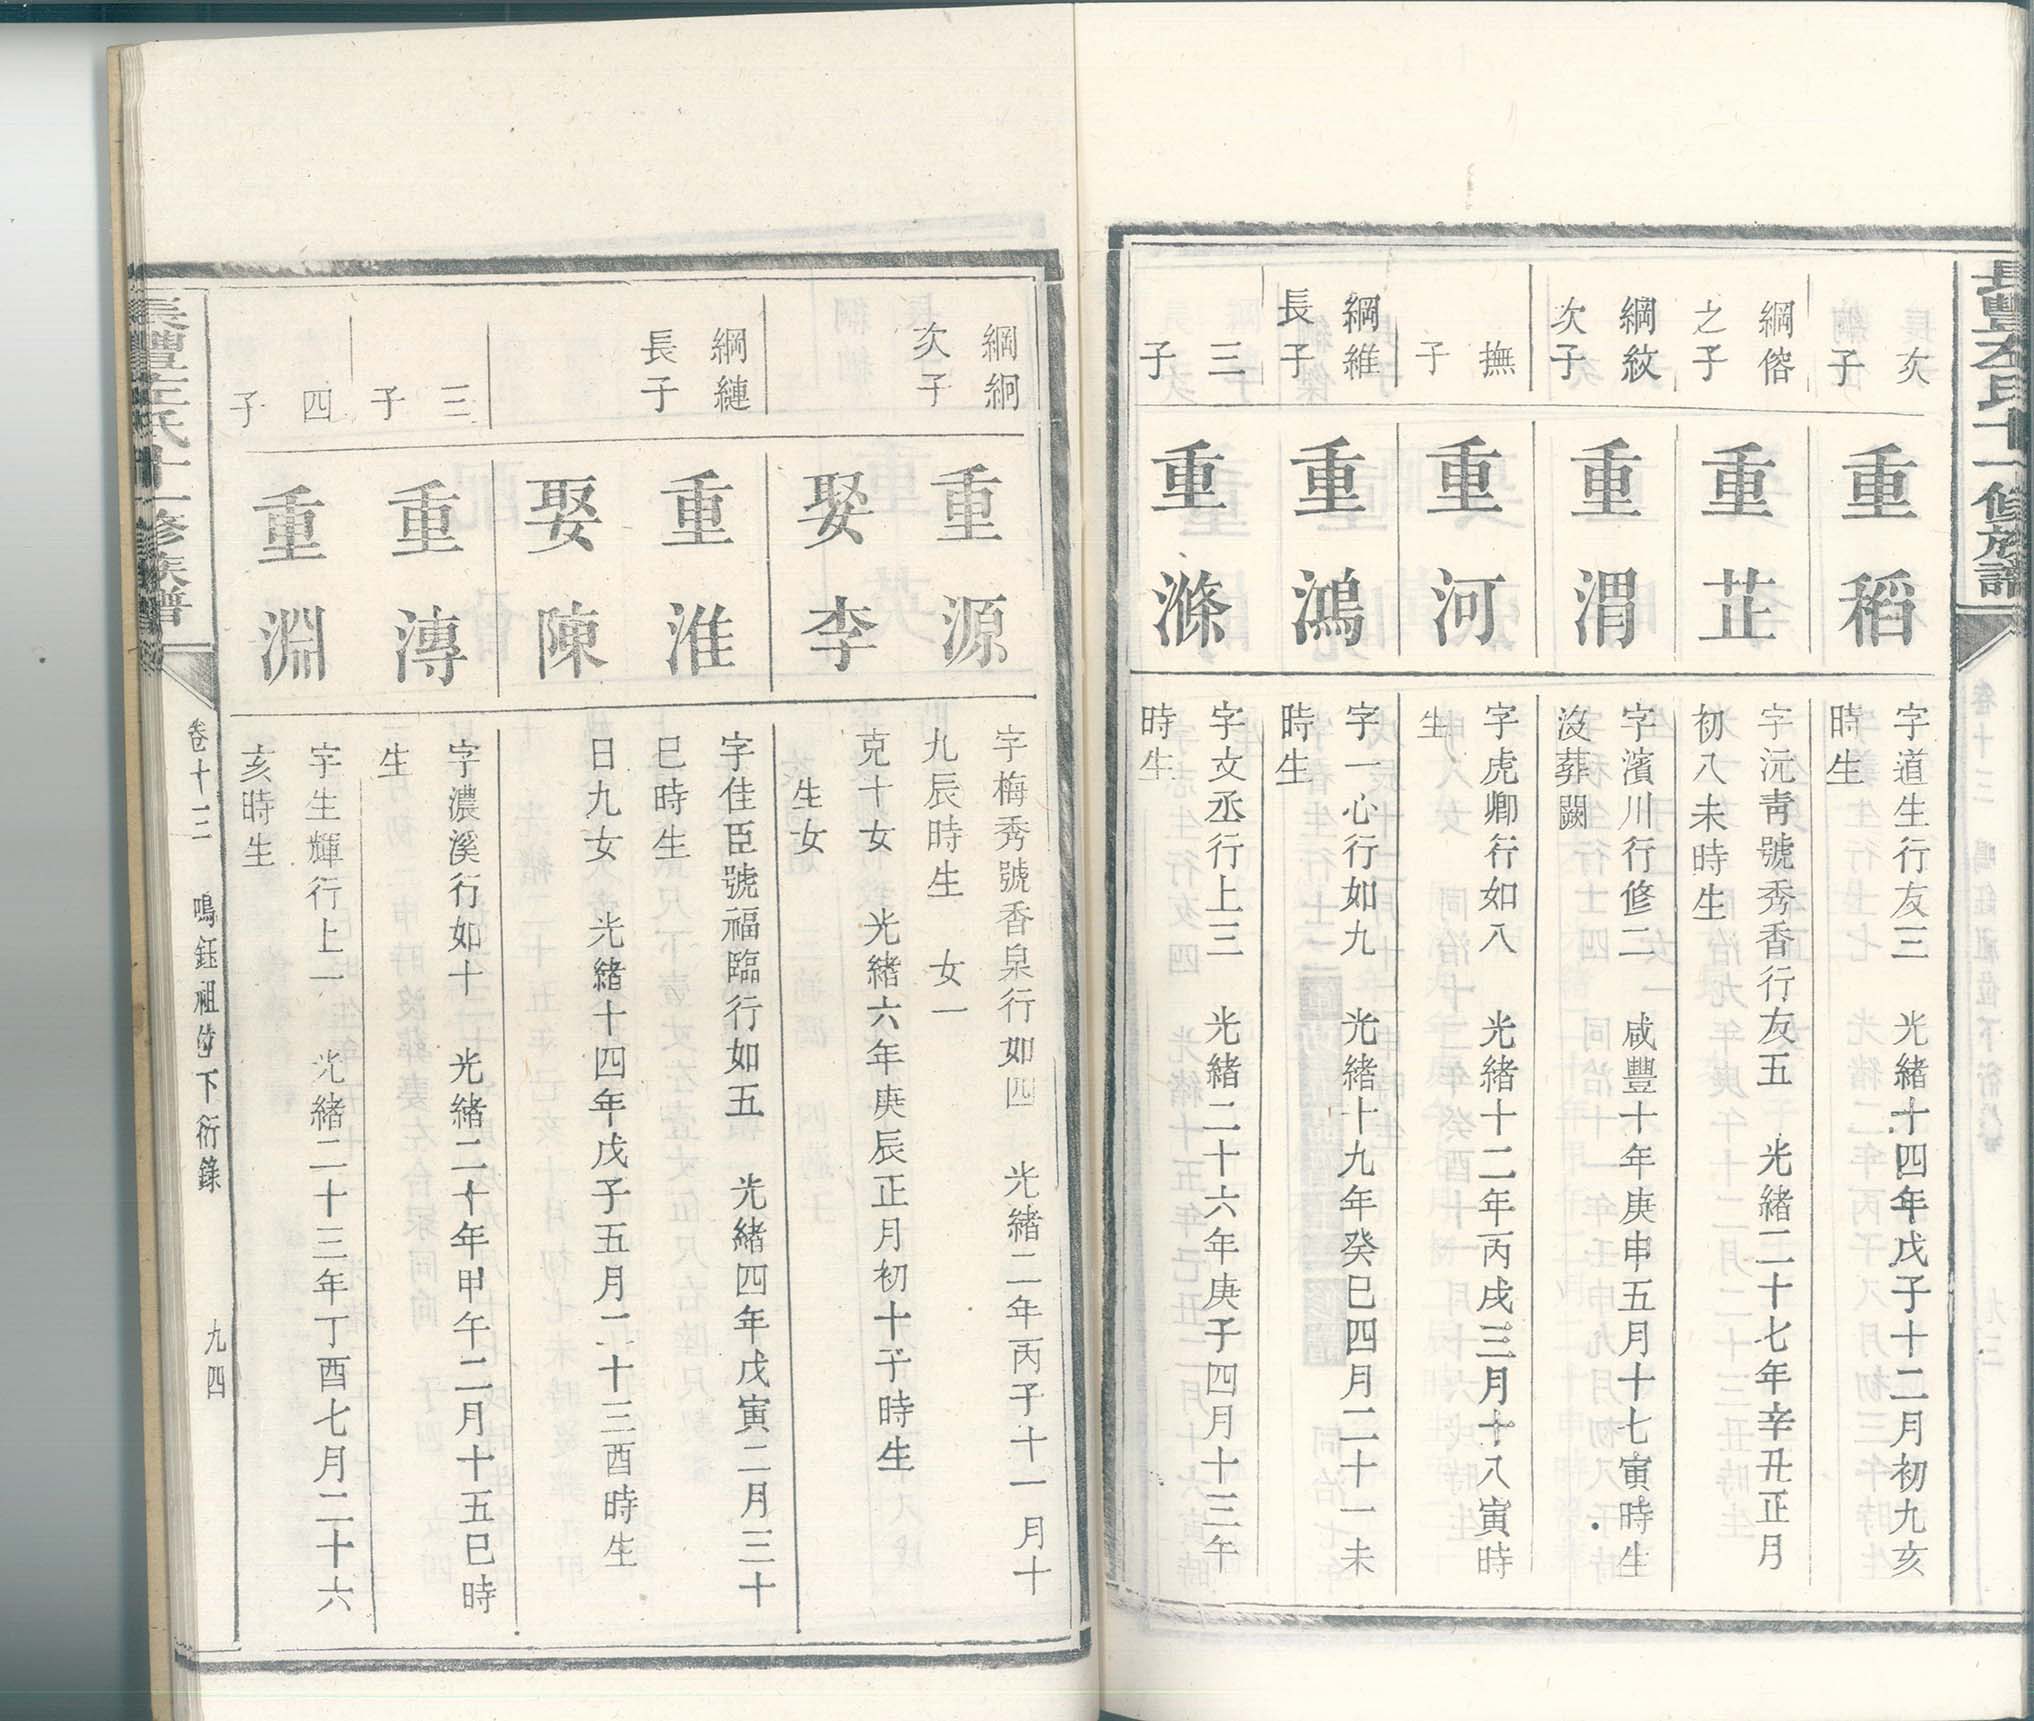 長豐左氏十一修族譜
次
子
重稻
字道生行友三　光緒十四年戊子十二月初九亥
時生
綱傛
之子
重芷
字沅靑號秀香行友五　光緒二十七年辛丑正月
初八未時生
綱紋
次子
重渭
字濱川行修二　咸豐十年庚申五月十七寅時生
沒葬闕
撫
子
重河
字虎卿行如八　光緒十二年丙戌三月十八寅時
生
綱維
長子
重鴻
字一心行如九　光緒十九年癸巳四月二十一未
時生
三
子
重滌
字文丞行上三　光緒二十六年庚子四月十三午
時生
綱絅
次子
重源
字梅秀號香泉行如四　光緒二年丙子十一月十
九辰時生　女一
娶李
克十女　光緒六年庚辰正月初十子時生
生女
綱縺
長子
重淮
字佳臣號福臨行如五　光緒四年戊寅二月三十
巳時生
娶陳
日九女　光緒十四年戊子五月二十三酉時生
三
子
重漙
字濃溪行如十　光緒二十年甲午二月十五巳時
生
四
子
重淵
字生輝行上一　光緒二十三年丁酉七月二十六
亥時生
長豐左氏十一修族譜
卷十三　鳴鈺祖位下衍錄　九四